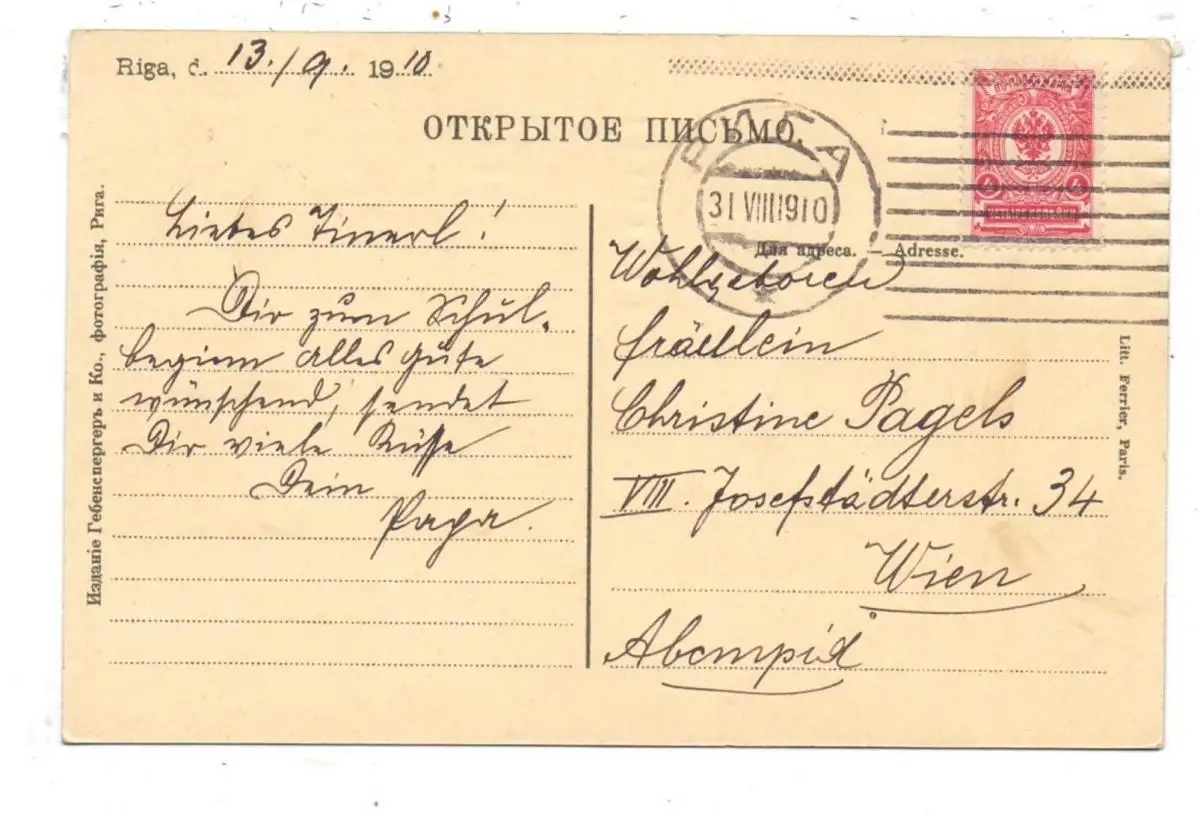 Riga, d. 13./9. 1910
ОТКРЫТОЕ ПИСЬМО.
РИГА
31 VIII 1910
Для адреса. — Adresse.
Liebes Tinerl!
Dir zum Schul-
beginn alles Gute
wünschend, sendet
Dir viele Küsse
Dein
Papa.
Wohlgeboren
Fräulein
Christine Pagels
VIII. Josefstädterstr. 34
Wien
Австрія
Изданіе Гебенспергеръ и Ко., фотографія, Рига.
Litt. Ferrier, Paris.